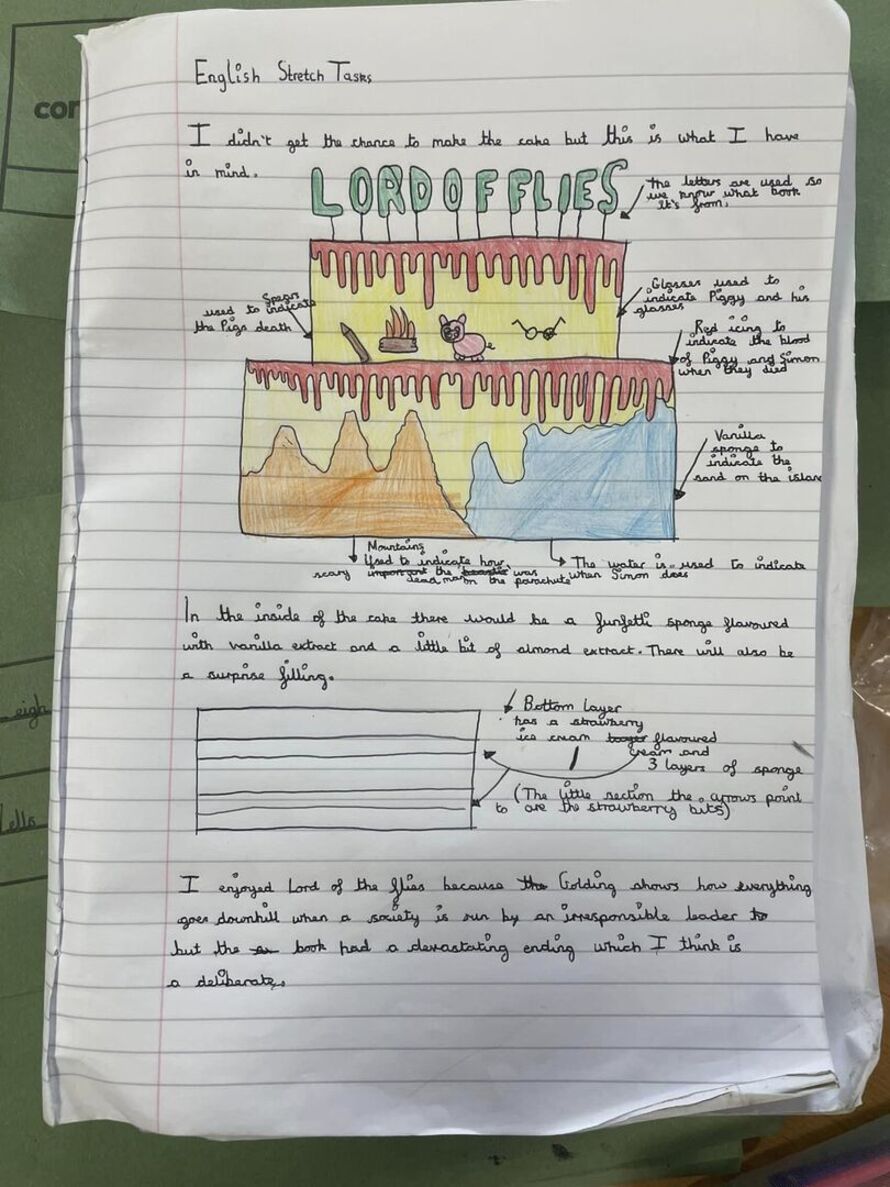 English Stretch Tasks
I didn't get the chance to make the cake but this is what I have
in mind.
LORD OF FLIES
the letters are used so
we know what book
it's from.
Spears
used to indicate
the Pigs death
Glasses used to
indicate Piggy and his
glasses
Red icing to
indicate the blood
of Piggy and Simon
when they died
Vanilla
sponge to
indicate the
sand on the island
Mountains
Used to indicate how
scary important the was
dead man on the parachute
The water is used to indicate
when Simon dies
In the inside of the cake there would be a funfetti sponge flavoured
with vanilla extract and a little bit of almond extract. There will also be
a surprise filling.
Bottom layer
has a strawberry
ice cream flavoured
cream and
3 layers of sponge
(The little section the arrows point
to are the strawberry bits)
I enjoyed Lord of the flies because the Golding shows how everything
goes downhill when a society is run by an irresponsible leader to
but the book had a devastating ending which I think is
a deliberate.
con
eigh
ells